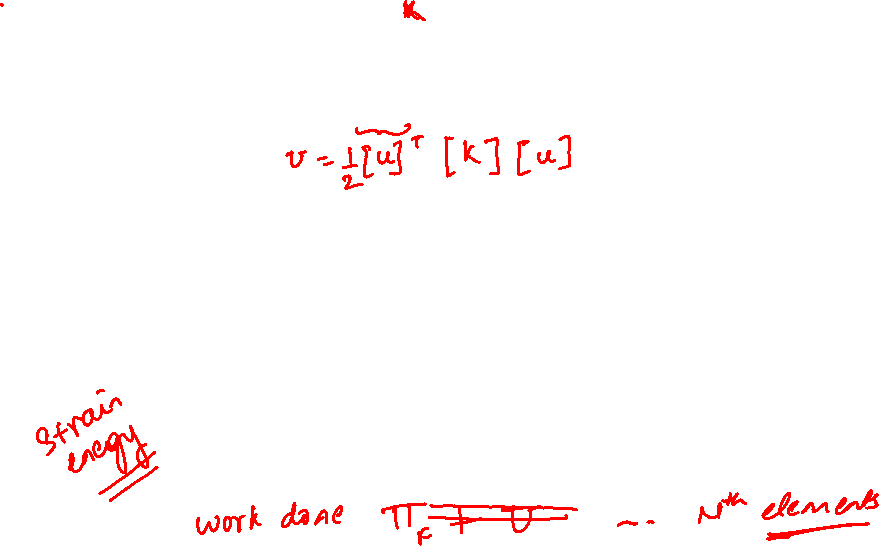 k
v = 1/2 [u]ᵀ [K] [u]
strain
enegy
work done Π_F ... Nᵗʰ elements